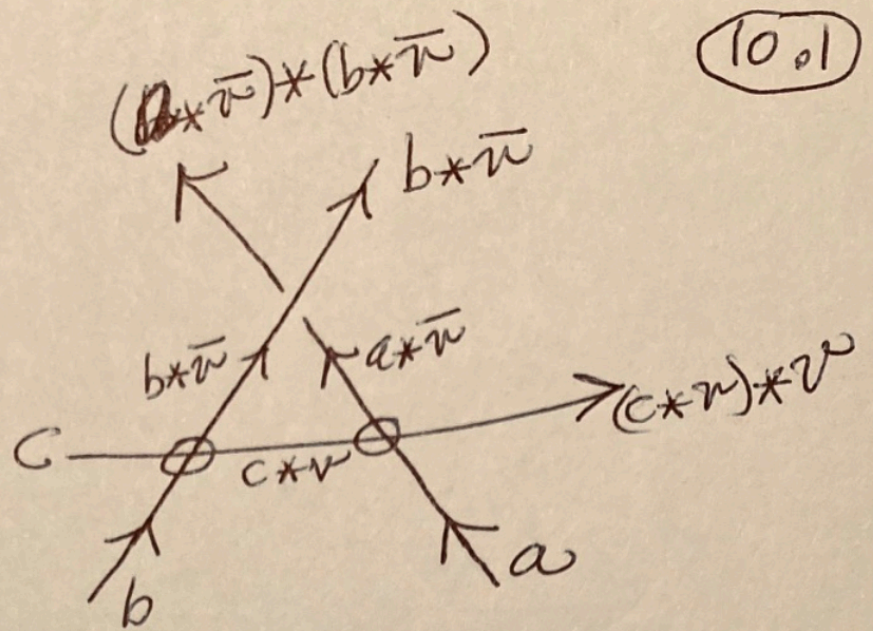 10.1
(a*v̄)*(b*v̄)
b*v̄
b*v̄
a*v̄
(c*v)*v
C
c*v
a
b